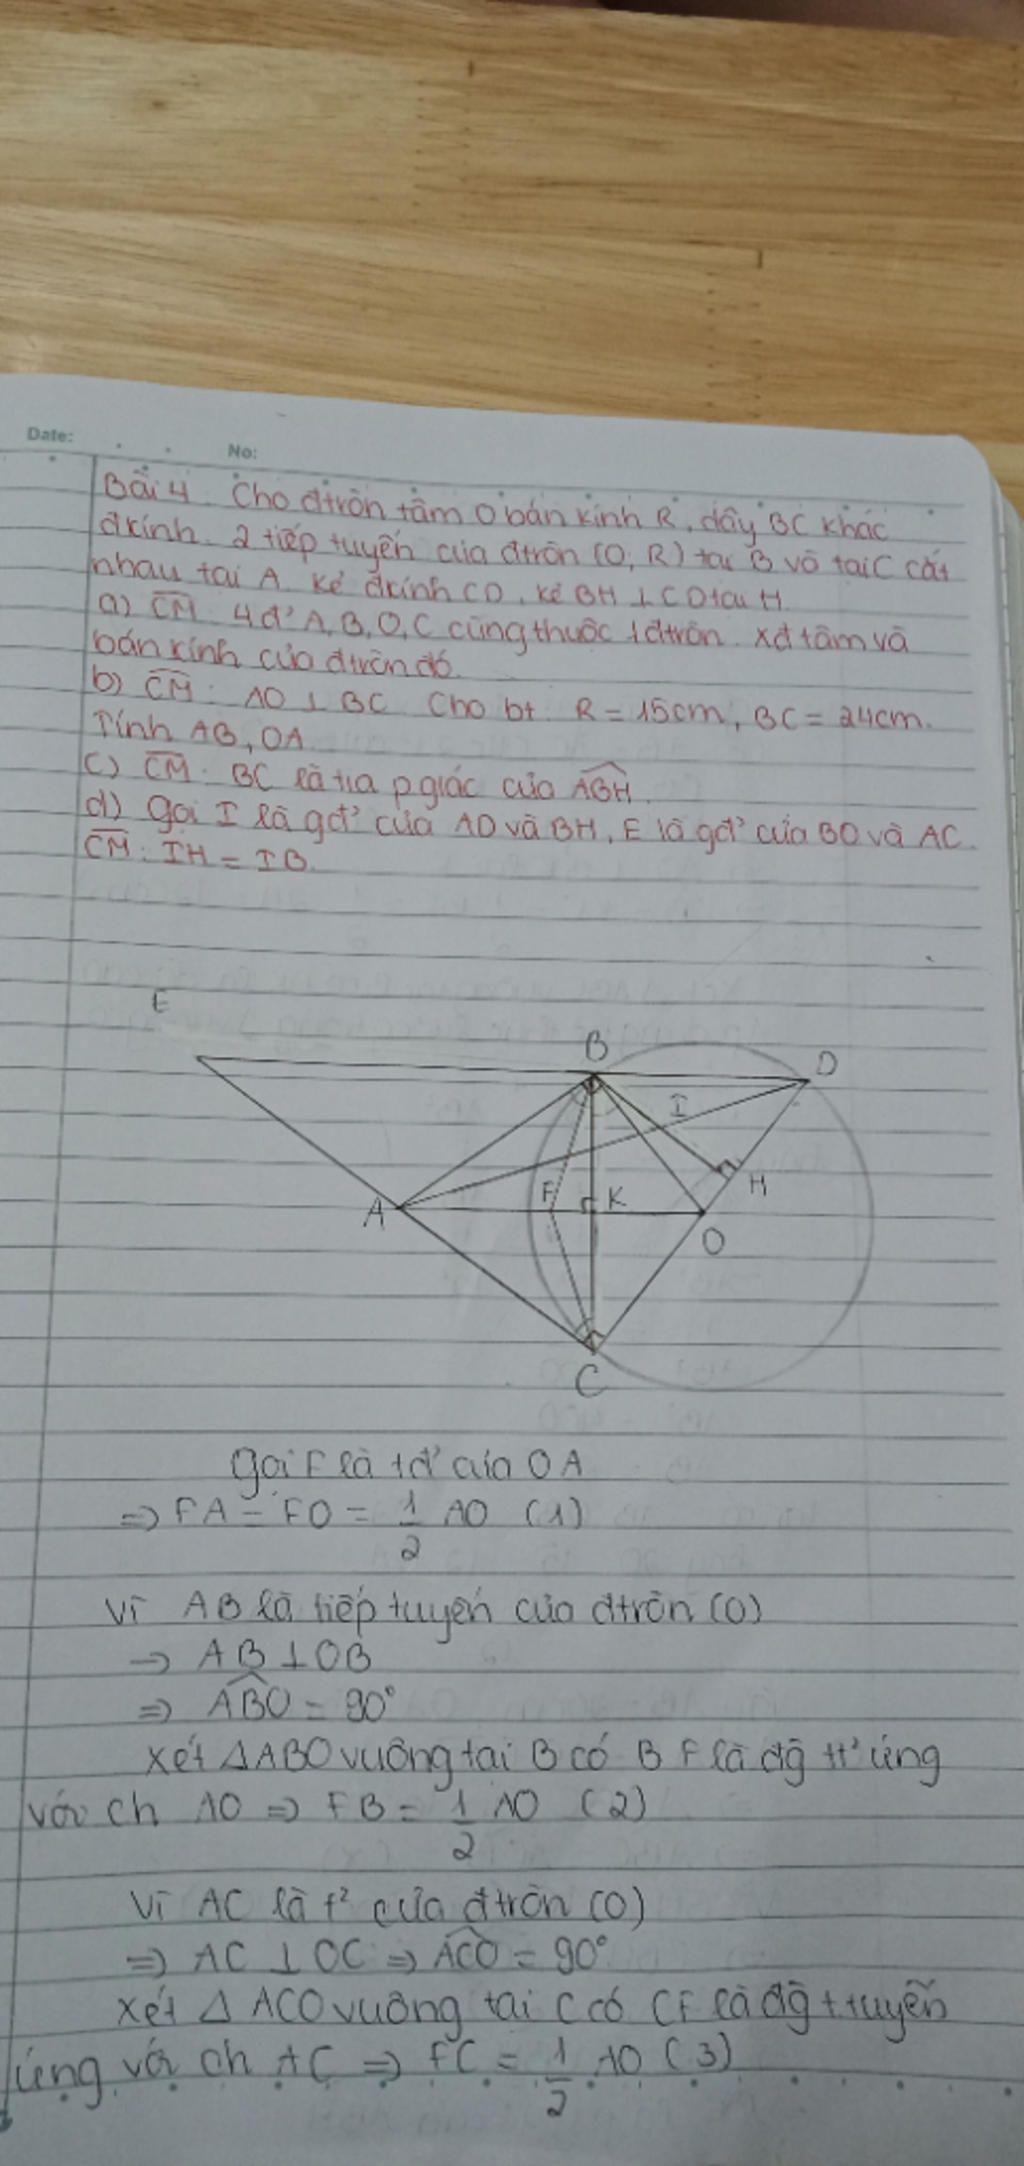 Date: No:
Bài 4. Cho đtròn tâm O bán kính R, dây BC khác
đkính. 2 tiếp tuyến của đtròn (O; R) tại B và tại C cắt
nhau tại A. Kẻ đkính CD, kẻ BH ⊥ CD tại H.
a) CM: 4 đ' A, B, O, C cùng thuộc 1 đtròn. Xđ tâm và
bán kính của đtròn đó.
b) CM: AO ⊥ BC. Cho bt R = 15cm, BC = 24cm.
Tính AB, OA.
c) CM: BC là tia pgiác của ABH.
d) Gọi I là gđ' của AD và BH, E là gđ' của BD và AC.
CM: IH = IB.
E
B
D
I
F
K
H
A
O
C
gọi F là tđ' của OA
=> FA = FO = 1/2 AO (1)
Vì AB là tiếp tuyến của đtròn (O)
=> AB ⊥ OB
=> ABO = 90°
Xét ΔABO vuông tại B có BF là đg tt' ứng
với ch AO => FB = 1/2 AO (2)
Vì AC là t² của đtròn (O)
=> AC ⊥ OC => ACO = 90°
Xét Δ ACO vuông tại C có CF là đg ttuyến
ứng với ch AC => FC = 1/2 AO (3)